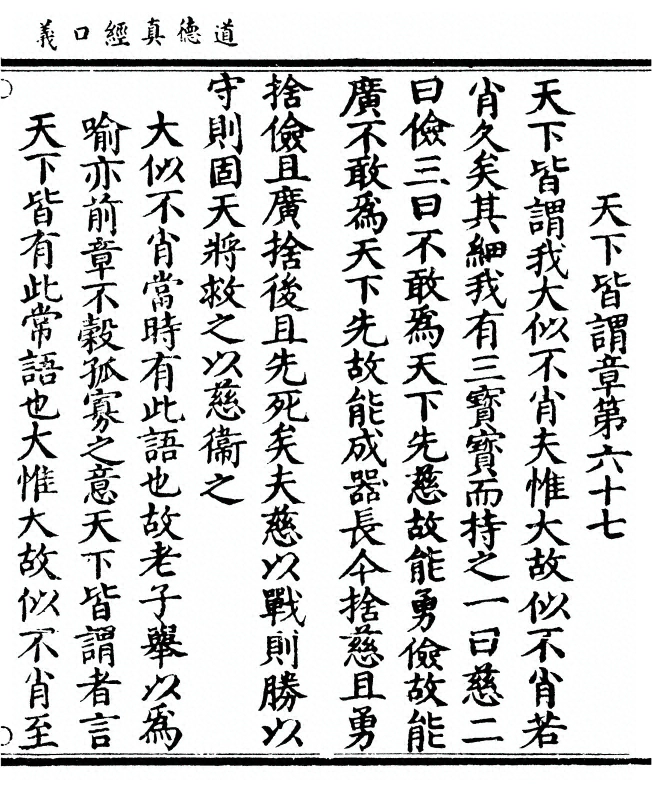 道德真經口義
天下皆謂章第六十七
天下皆謂我大似不肖夫惟大故似不肖若
肖久矣其細我有三寶寶而持之一曰慈二
曰儉三曰不敢爲天下先慈故能勇儉故能
廣不敢爲天下先故能成器長今捨慈且勇
捨儉且廣捨後且先死矣夫慈以戰則勝以
守則固天將救之以慈衞之
大似不肖當時有此語也故老子舉以爲
喻亦前章不穀孤寡之意天下皆謂者言
天下皆有此常語也大惟大故似不肖至